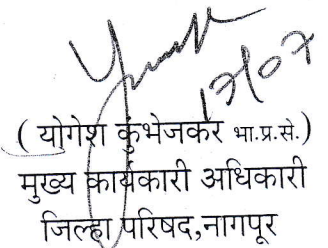 17/07
( योगेश कुंभेजकर भा.प्र.से.)
मुख्य कार्यकारी अधिकारी
जिल्हा परिषद,नागपूर